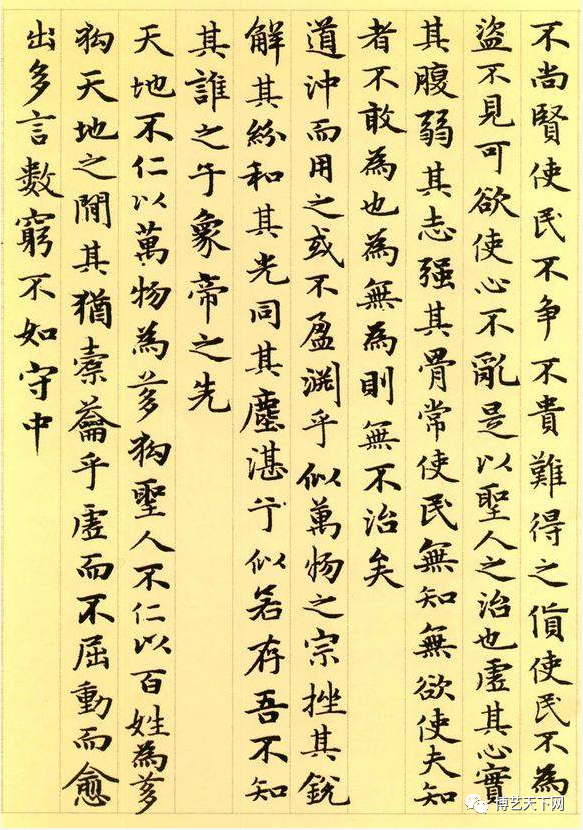 不尚賢使民不争不貴難得之貨使民不為
盜不見可欲使心不亂是以聖人之治也虛其心實
其腹弱其志强其骨常使民無知無欲使夫知
者不敢為也為無為則無不治矣
道沖而用之或不盈淵乎似萬物之宗挫其銳
解其紛和其光同其塵湛兮似若存吾不知
其誰之子象帝之先
天地不仁以萬物為芻狗聖人不仁以百姓為芻
狗天地之間其猶橐籥乎虛而不屈動而愈
出多言數窮不如守中
博艺天下网